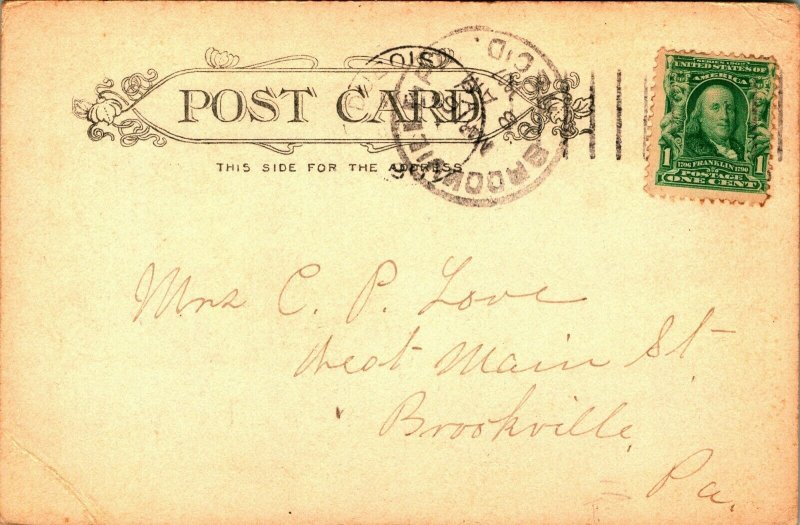 POST CARD
THIS SIDE FOR THE ADDRESS
SERIES 1902
UNITED STATES OF
AMERICA
1706 FRANKLIN 1790
1 1
POSTAGE
ONE CENT
BROOKVILLE
REC'D.
Mrs C. P. Love
West Main St
Brookville
Pa,